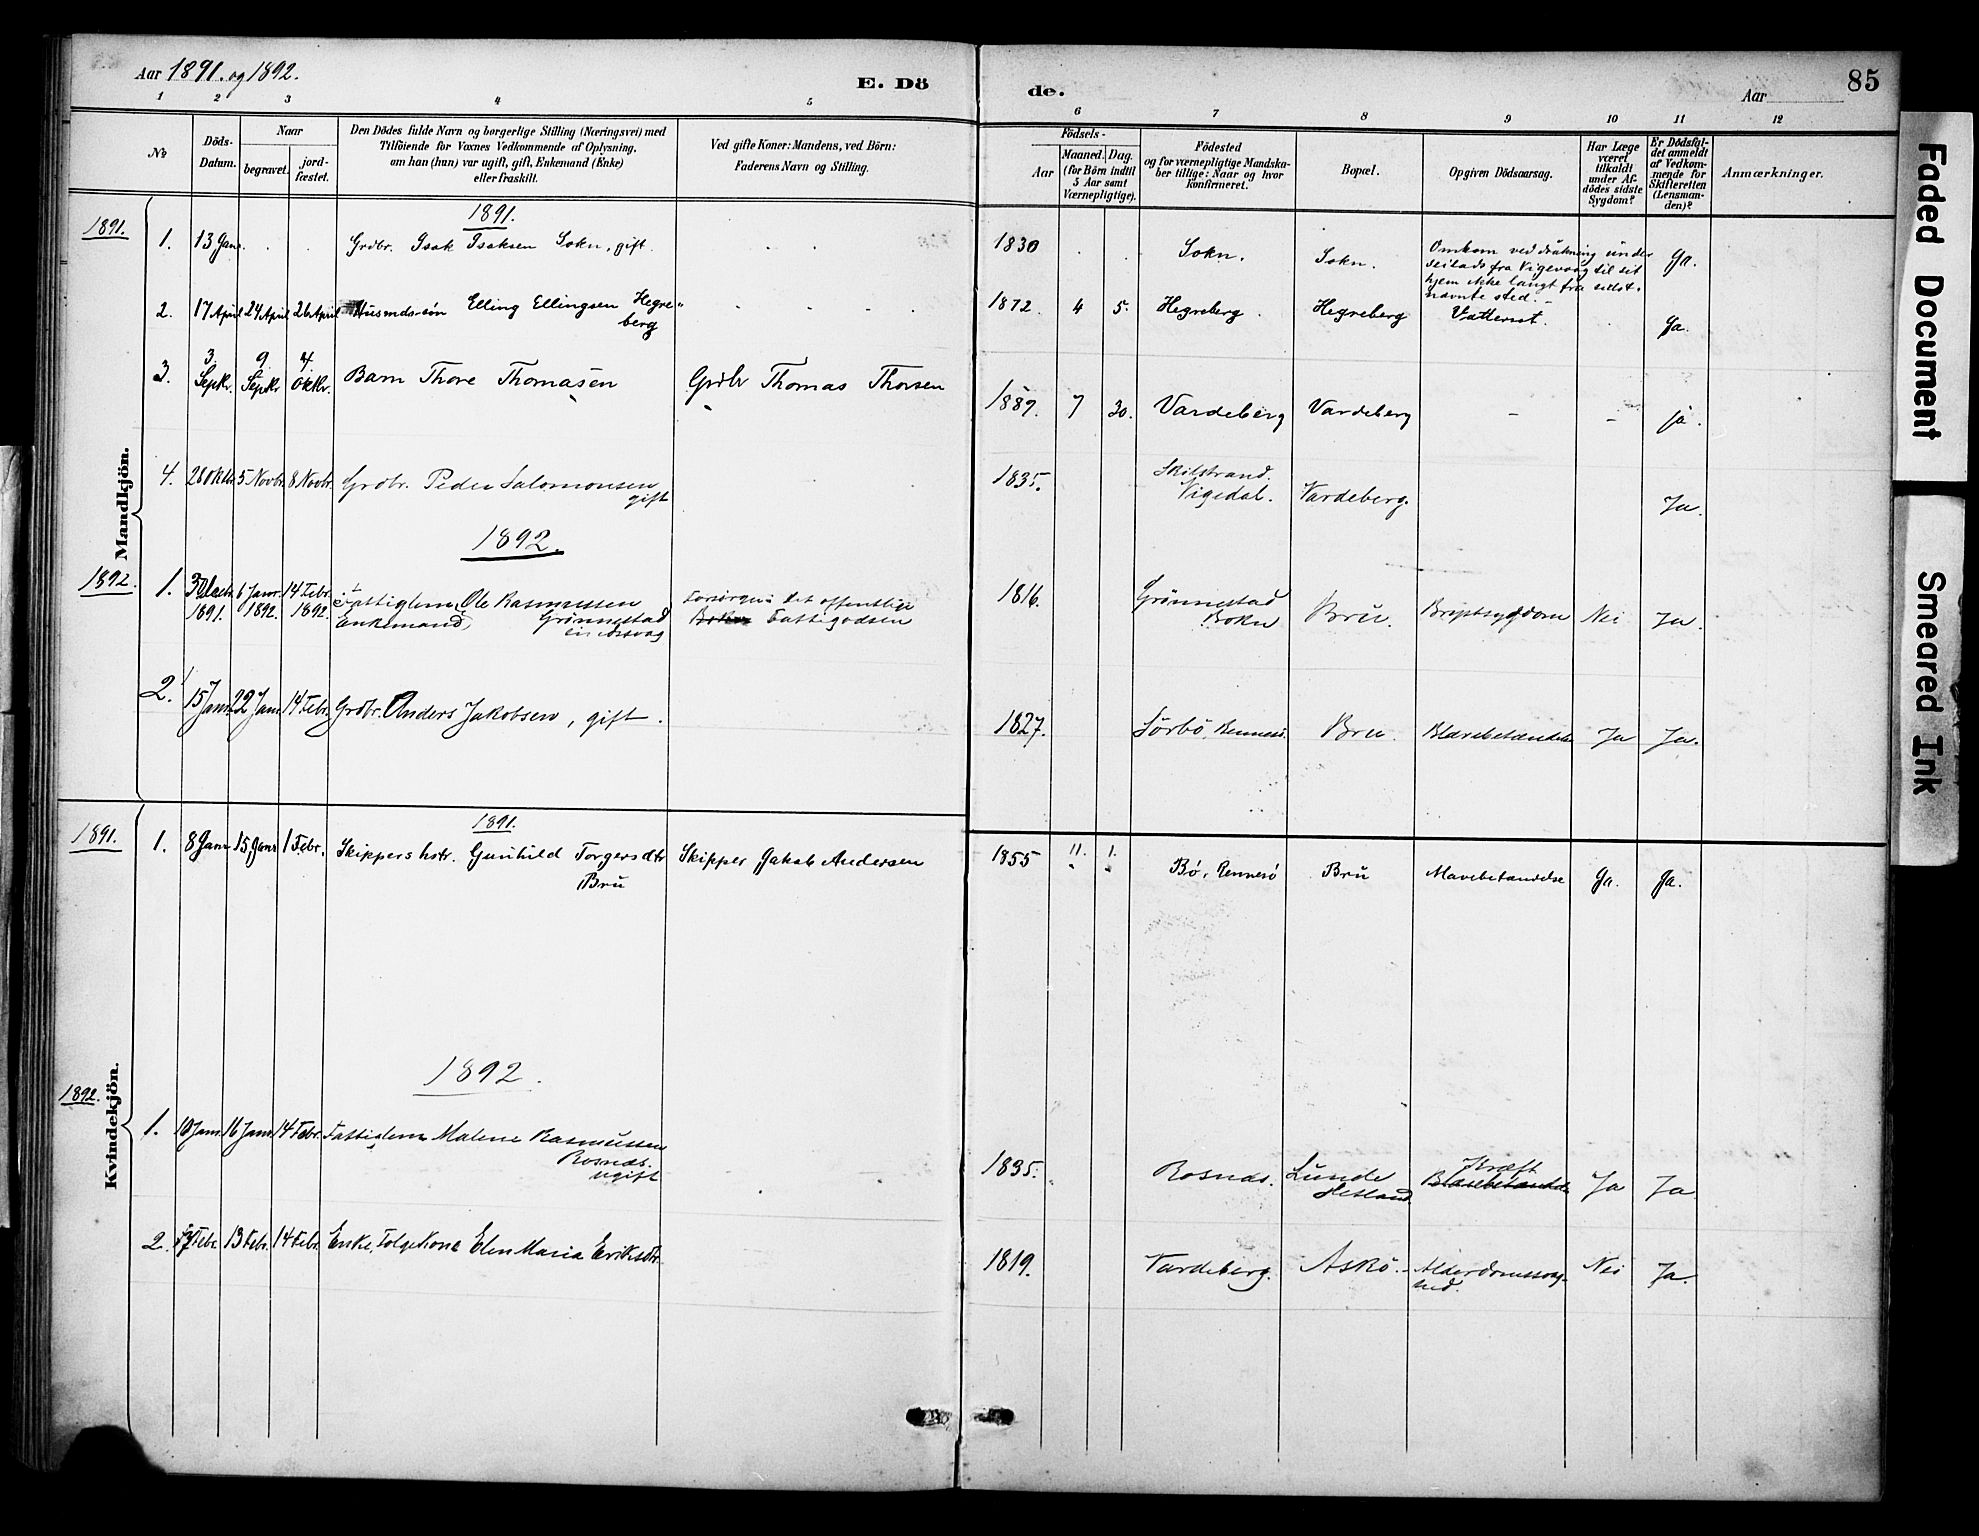 Aar 1891. og 1892.
E. Döde.
Aar
85
1 2 3 4 5 6 7 8 9 10 11 12
No
Döds-Datum.
Naar
begravet.
jord-fæstet.
Den Dödes fulde Navn og borgerlige Stilling (Næringsvei) med
Tilföiende for Voxnes Vedkommende af Oplysning,
om han (hun) var ugift, gift, Enkemand (Enke)
eller fraskilt.
Ved gifte Koner: Mandens, ved Börn:
Faderens Navn og Stilling.
Födsels-
Aar
Maaned. Dag.
(for Börn indtil
5 Aar samt
Værnepligtige).
Födested
og for værnepligtige Mandska-
ber tillige: Naar og hvor
konfirmeret.
Bopæl.
Opgiven Dödsaarsag.
Har Læge
været
tilkaldt
under Af-
dödes sidste
Sygdom?
Er Dödsfal-
det anmeldt
af Vedkom-
mende for
Skifteretten
(Lensman-
den)?
Anmærkninger.
Mandkjön.
1891.
1891.
1. 13 Janr. Grdbr. Isak Isaksen Sokn, gift. 1830 Sokn. Sokn. Omkom ved drukning under
seilads fra Vigevaag til sit
hjem ikke langt fra sidst-
nævnte sted. Ja.
2. 17 April 24 April 26 April Husmdssön Elling Ellingsen Hegre-
berg 1872. 4 5. Hegreberg. Hegreberg Vattersot. Ja.
3. 3. Septr. 9. Septbr 4. Oktbr. Barn Thore Thomasen Grdbr Thomas Thorsen 1889. 7 30. Vardeberg Vardeberg - - ja.
4. 28 Oktbr. 5 Novbr. 8 Novbr. Grdbr. Peder Salomonsen
gift 1835. Skilstrand.
Vigedal. Vardeberg. Ja.
1892.
1892.
1. 30 Decbr.
1891. 6 Janr.
1892. 14 Febr.
1892. Fattiglem, Ole Rasmussen
Enkemand, Grönnestad
Forsörges det offentlige
Fattigvdsen 1816. Grönnestad
Bokn Bru. Brystsygdom Nei Ja.
2. 15 Janr. 22 Janr. 14 Febr. Grdbr. Anders Jakobsen, gift. 1827. Sörbö, Rennesö. Bru. Blærebetændelse Ja Ja.
Kvindekjön.
1891.
1891.
1. 8 Janr 15 Janr 1 Febr. Skippers hstr. Gunhild Torgersdtr
Bru Skipper Jakob Andersen 1855 11. 1. Bø, Rennesö Bru Mavebetændelse Ja. Ja.
1892.
1892.
1. 10 Janr. 16 Janr. 14 Febr. Fattiglem Malene Rasmussen
Rosnæs.
ugift 1835. Rosnæs. Lunde
Hetland Kræft
Blærebetændelse Ja Ja
2. 7 Febr. 13 Febr. 14 Febr. Enke, Folgekone Elen Maria Eriksdtr. 1819. Vardeberg. Askö. Alderdomssvag-
hed. Nei Ja.
Faded Document
Smeared Ink